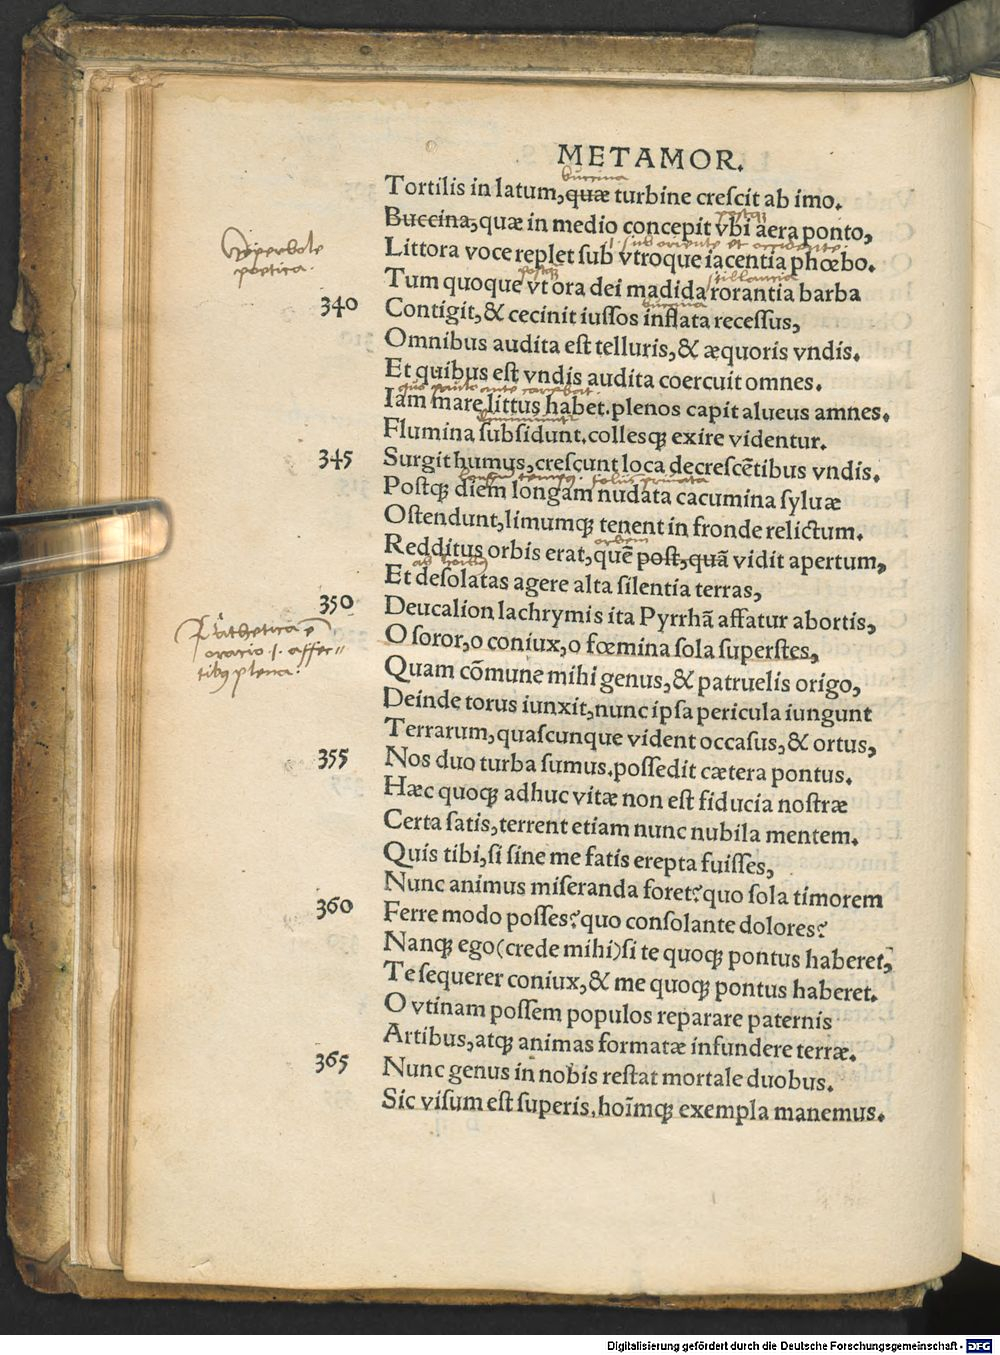 METAMOR.
buccina
Tortilis in latum, quæ turbine creſcit ab imo.
postqȝ
Buccina, quæ in medio concepit vbi aera ponto,
.i. sub oriente et occidente.
Hyperbole
poetica.
Littora voce replet ſub vtroque iacentia phœbo.
postqȝ stillantia
Tum quoque vt ora dei madida rorantia barba
buccina
340 Contigit, & cecinit iuſſos inflata receſſus,
Omnibus audita eſt telluris, & æquoris vndis.
Et quibus eſt vndis audita coercuit omnes.
quo paulo ante carebat.
Iam mare littus habet. plenos capit alueus amnes.
Flumina ſubſidunt. colleſqȝ exire videntur.
345 Surgit humus, creſcunt loca decreſcētibus vndis.
longum tempus.
Poſtqȝ diem longam nudata cacumina ſyluæ
Oſtendunt, limumqȝ tenent in fronde relictum.
orbem
Redditus orbis erat, quē poſt, quā vidit apertum,
Et deſolatas agere alta ſilentia terras,
350 Deucalion lachrymis ita Pyrrhā affatur abortis,
Pathetica ē
oratio .i. affec=
tibȝ plena.
O ſoror, o coniux, o fœmina ſola ſuperſtes,
Quam cōmune mihi genus, & patruelis origo,
Deinde torus iunxit, nunc ipſa pericula iungunt
Terrarum, quaſcunque vident occaſus, & ortus,
355 Nos duo turba ſumus. poſſedit cætera pontus.
Hæc quoqȝ adhuc vitæ non eſt fiducia noſtræ
Certa ſatis, terrent etiam nunc nubila mentem.
Quis tibi, ſi ſine me fatis erepta fuiſſes,
Nunc animus miſeranda foret? quo ſola timorem
360 Ferre modo poſſes? quo conſolante dolores?
Nanqȝ ego (crede mihi) ſi te quoqȝ pontus haberet,
Te ſequerer coniux, & me quoqȝ pontus haberet.
O vtinam poſſem populos reparare paternis
Artibus, atqȝ animas formatæ infundere terræ.
365 Nunc genus in nobis reſtat mortale duobus.
Sic viſum eſt ſuperis, hoīmqȝ exempla manemus.
Digitalisierung gefördert durch die Deutsche Forschungsgemeinschaft - DFG